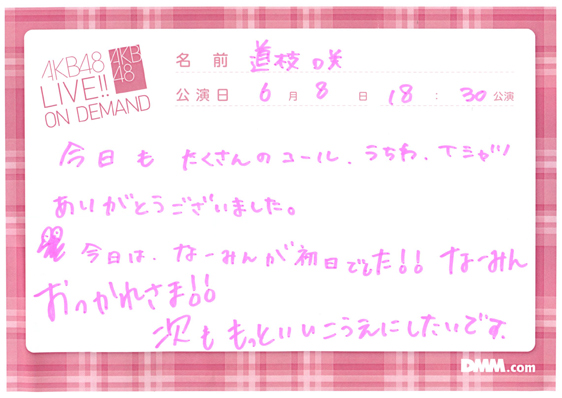 AKB48
LIVE!!
ON DEMAND
AKB
48
名前 道枝 咲
公演日 6月8日 18:30公演
今日も たくさんのコール、うちわ、Tシャツ
ありがとうございました。
今日は、なーみんが初日でした!! なーみん
おつかれさま!!
次も もっといいこうえにしたいです。
DMM.com